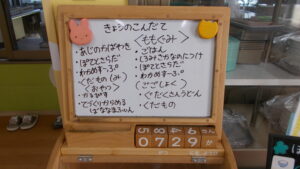 きょうのこんだて
・あじのかばやき
・ぽてとさらだ
・わかめすーぷ
・くだもの(み)
<おやつ>
・てづくりからめる
ばななまふぃん
<ももぐみ>
・ごはん
・しろみざかなのにつけ
・ぽてとさらだ
・わかめすーぷ
<ごごしょく>
・ぐだくさんうどん
・くだもの
0729